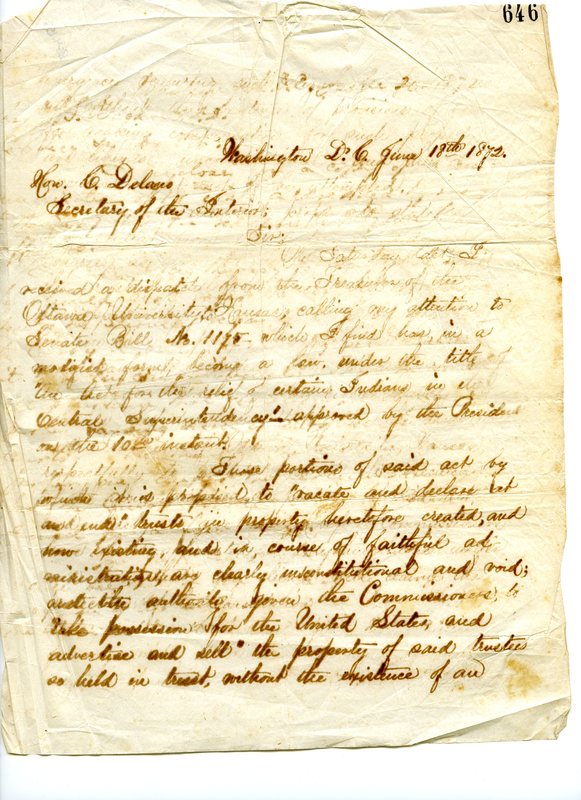 646
Washington D. C. June 18th 1872.
Hon. C. Delano
Secretary of the Interior,
Sir:
On Saturday last, I
received a dispatch from the Treasurer of the
Ottawa University, Kansas, calling my attention to
Senate Bill No. 1175 which, I find has, in a
modified form, become a law, under the title of
"An Act for the relief of certain Indians in the
Central Superintendency" approved by the President
on the 10th instant.
Those portions of said act by
which it is proposed, to "vacate and declare at
an end" trusts in property heretofore created, and
now existing, and in course of faithful ad
ministration, are clearly unconstitutional and void;
and the authority given the Commissioners, to
"take possession for the United States, and
advertise and sell" the property of said trustees
so held in trust, without the existence of an